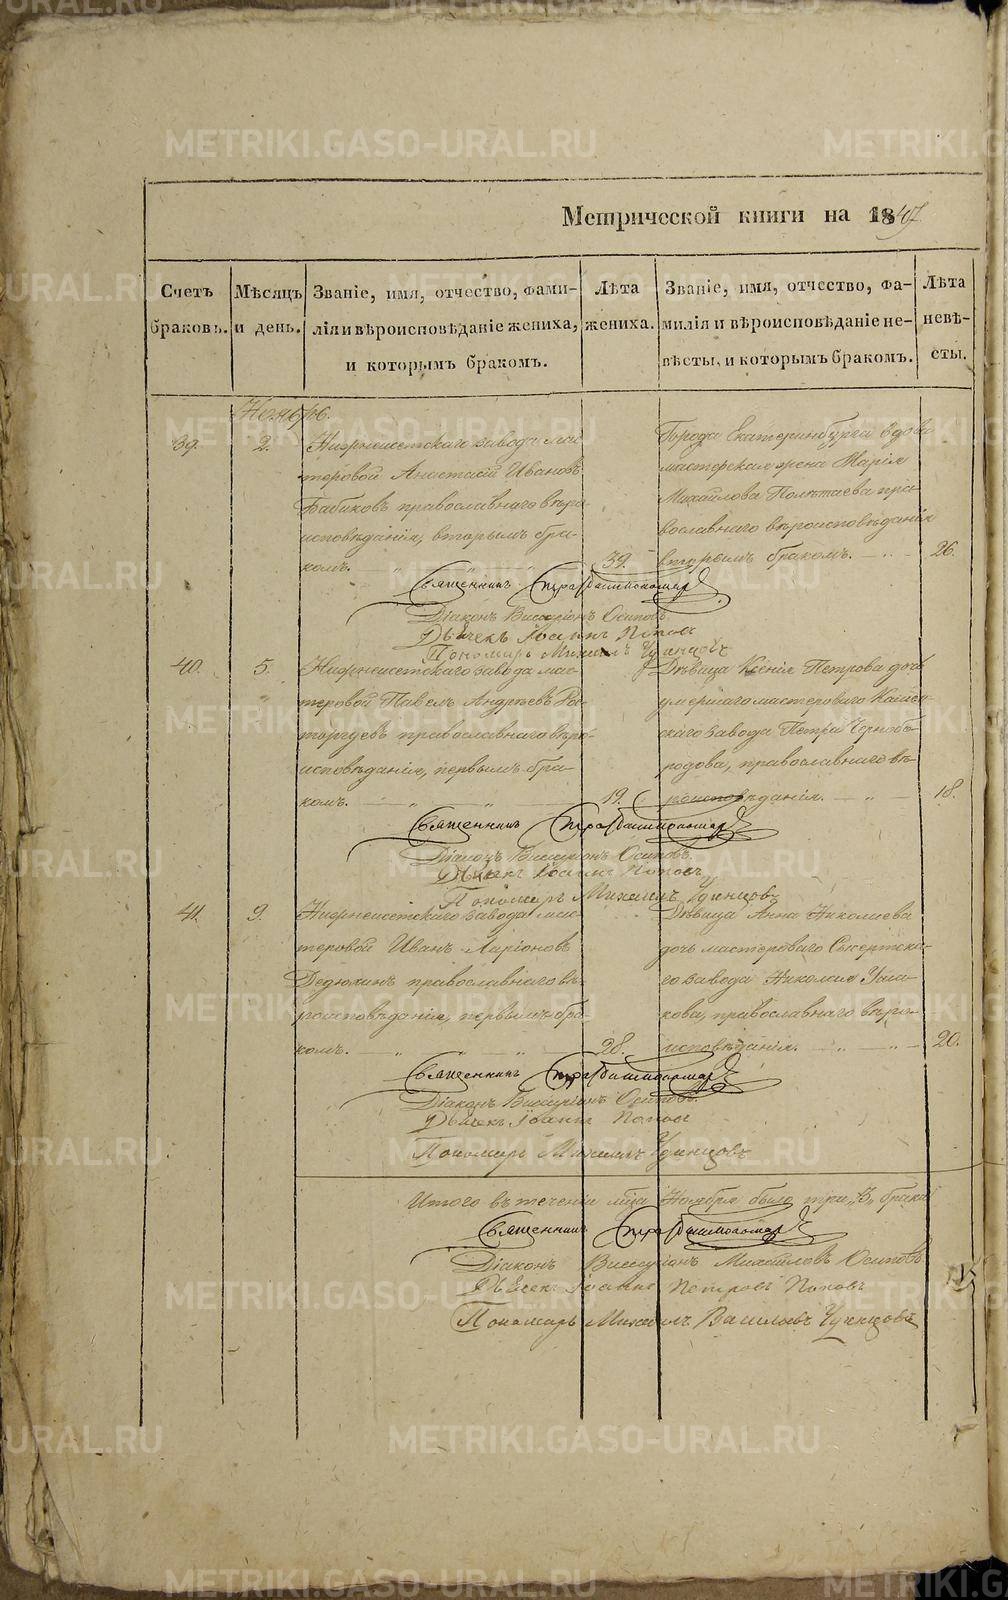 Метрической книги на 1847
Счетъ браковъ.
Мѣсяцъ и день.
Званіе, имя, отчество, фами-
лія и вѣроисповѣданіе жениха,
и которымъ бракомъ.
Лѣта жениха.
Званіе, имя, отчество, фа-
милія и вѣроисповѣданіе не-
вѣсты, и которымъ бракомъ.
Лѣта невѣ-
сты.
Ноябрь.
39.
2.
Нижнеисетскаго завода мас-
теровой Анастасій Ивановъ
Бабиковъ православнаго вѣро-
исповѣданія, вторымъ бра-
комъ.
39.
Города Екатеринбурга вдова
мастерская жена Марія
Михайлова Полѣтаева пра-
вославнаго вѣроисповѣданія
вторымъ бракомъ.
26.
Священникъ
Діаконъ Виссаріонъ Осиповъ.
Дьячекъ Іоаннъ Поповъ
Пономарь Михаилъ Чудинцовъ
40.
5.
Нижнеисетскаго завода мас-
теровой Павелъ Андреевъ Рас-
торгуевъ православнаго вѣро-
исповѣданія, первымъ бра-
комъ.
19.
Дѣвица Ксенія Петрова дочь
умершаго мастероваго Каменс-
скаго завода Петра Чернобо-
родова, православнаго вѣ-
роисповѣданія.
18.
Священникъ
Діаконъ Виссаріонъ Осиповъ.
Дьячекъ Іоаннъ Поповъ
Пономарь Михаилъ Чудинцовъ
41.
9.
Нижнеисетскаго завода мас-
теровой Иванъ Ларіоновъ
Дедюхинъ православнаго вѣ-
роисповѣданія, первымъ бра-
комъ.
28.
Дѣвица Анна Николаева
дочь мастероваго Сысертска-
го завода Николая Уша-
кова, православнаго вѣро-
исповѣданія.
20.
Священникъ
Діаконъ Виссаріонъ Осиповъ.
Дьячекъ Іоаннъ Поповъ
Пономарь Михаилъ Чудинцовъ
Итого въ теченіи мца Ноября было три „3„ брака
Священникъ
Діаконъ Виссаріонъ Михайловъ Осиповъ
Дьячекъ Іоаннъ Петровъ Поповъ
Пономарь Михаилъ Васильевъ Чудинцовъ
METRIKI.GASO-URAL.RU